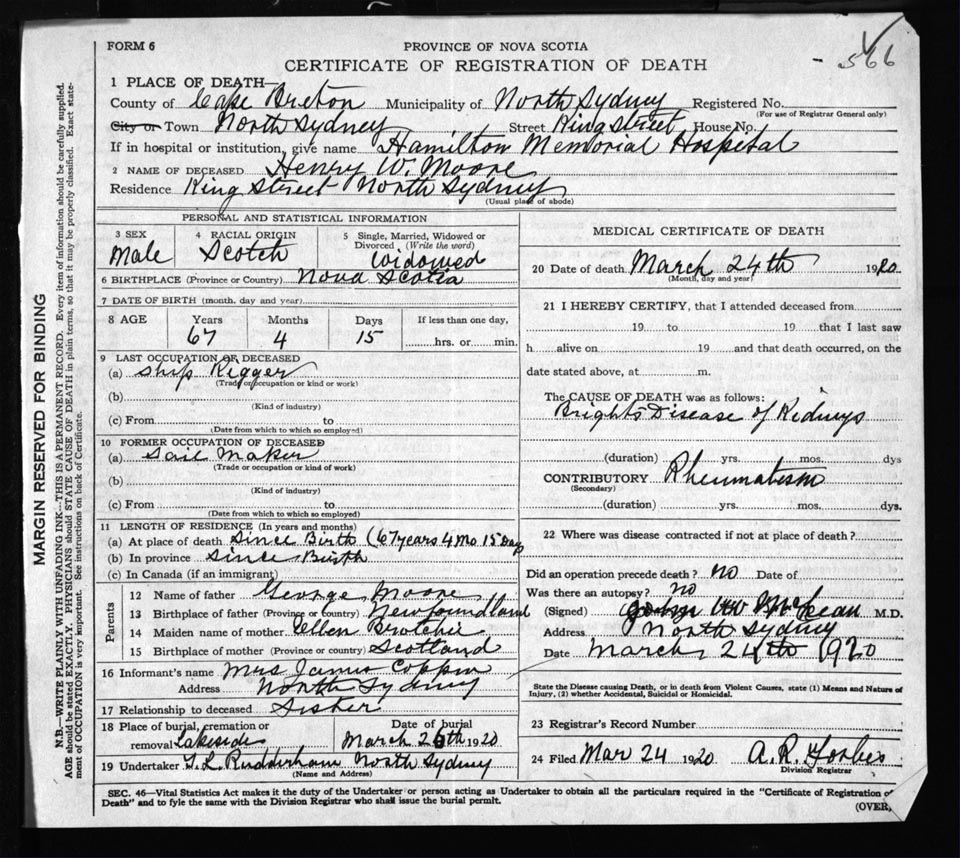 FORM 6
PROVINCE OF NOVA SCOTIA
566
CERTIFICATE OF REGISTRATION OF DEATH
1 PLACE OF DEATH
County of Cape Breton Municipality of North Sydney Registered No.
(For use of Registrar General only)
City or Town North Sydney Street King Street House No.
If in hospital or institution, give name Hamilton Memorial Hospital
2 NAME OF DECEASED Henry W. Moore
Residence King Street North Sydney
(Usual place of abode)
PERSONAL AND STATISTICAL INFORMATION
3 SEX 4 RACIAL ORIGIN 5 Single, Married, Widowed or Divorced (Write the word)
Male Scotch Widowed
6 BIRTHPLACE (Province or Country) Nova Scotia
7 DATE OF BIRTH (month, day and year)
8 AGE Years Months Days If less than one day,
67 4 15 hrs. or min.
9 LAST OCCUPATION OF DECEASED
(a) Ship Rigger
(Trade or occupation or kind or work)
(b)
(Kind of industry)
(c) From to
(Date from which to which so employed)
10 FORMER OCCUPATION OF DECEASED
(a) Sail Maker
(Trade or occupation or kind of work)
(b)
(Kind of industry)
(c) From to
(Date from which to which so employed)
11 LENGTH OF RESIDENCE (In years and months)
(a) At place of death Since Birth (67 years 4 Mo 15 Days
(b) In province Since Birth
(c) In Canada (if an immigrant)
Parents
12 Name of father George Moore
13 Birthplace of father (Province or Country) Newfoundland
14 Maiden name of mother Ellen Brotchie
15 Birthplace of mother (Province or country) Scotland
16 Informant's name Mrs James Coppin
Address North Sydney
17 Relationship to deceased Sister
18 Place of burial, cremation or Date of burial
removal Lakeside March 26th 1920
19 Undertaker T. L. Rudderham North Sydney
(Name and Address)
MEDICAL CERTIFICATE OF DEATH
20 Date of death March 24th 1920
(Month, day and year)
21 I HEREBY CERTIFY, that I attended deceased from
19 to 19 that I last saw
h alive on 19 and that death occurred, on the
date stated above, at m.
The CAUSE OF DEATH was as follows:
Brights Disease of Kidneys
(duration) yrs. mos. dys
CONTRIBUTORY Rheumatism
(Secondary)
(duration) yrs. mos. dys.
22 Where was disease contracted if not at place of death?
Did an operation precede death? no Date of
Was there an autopsy? no
(Signed) McLean M.D.
Address North Sydney
Date March 24th 1920
State the Disease causing Death, or in death from Violent Causes, state (1) Means and Nature of
Injury, (2) whether Accidental, Suicidal or Homicidal.
23 Registrar's Record Number
24 Filed Mar 24 1920 A. R. Forbes
Division Registrar
SEC. 46—Vital Statistics Act makes it the duty of the Undertaker or person acting as Undertaker to obtain all the particulars required in the "Certificate of Registration of
Death" and to fyle the same with the Division Registrar who shall issue the burial permit.
(OVER)
MARGIN RESERVED FOR BINDING
N.B.—WRITE PLAINLY WITH UNFADING INK—THIS IS A PERMANENT RECORD. Every item of information should be carefully supplied.
AGE should be stated EXACTLY. PHYSICIANS should STATE CAUSE OF DEATH in plain terms, so that it may be properly classified. Exact state-
ment of OCCUPATION is very important. See instructions on back of Certificate.